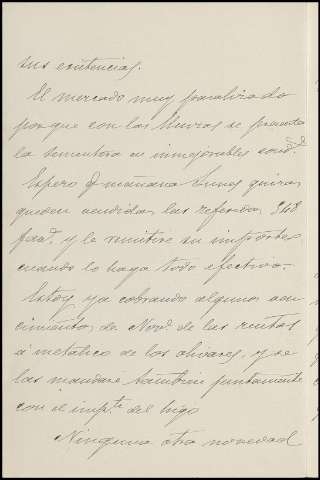 sus existencias.
El mercado muy paralizado
porque con las lluvias se presenta
la sementera en inmejorables cond.s
Espero q mañana Lunes quizas
queden vendidas las referidas 348
fan.s y le remitire su importe
cuando lo haga todo efectivo.
Estoy ya cobrando algunos ven
cimientos de Nov.e de las rentas
á metalico de los olivares, y se
las mandaré tambien juntamente
con el imp.te del higo
Ninguna otra novedad